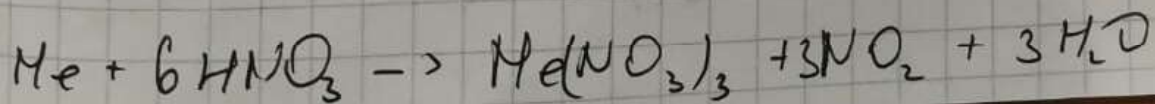 Me + 6 HNO₃ -> Me(NO₃)₃ + 3NO₂ + 3 H₂O